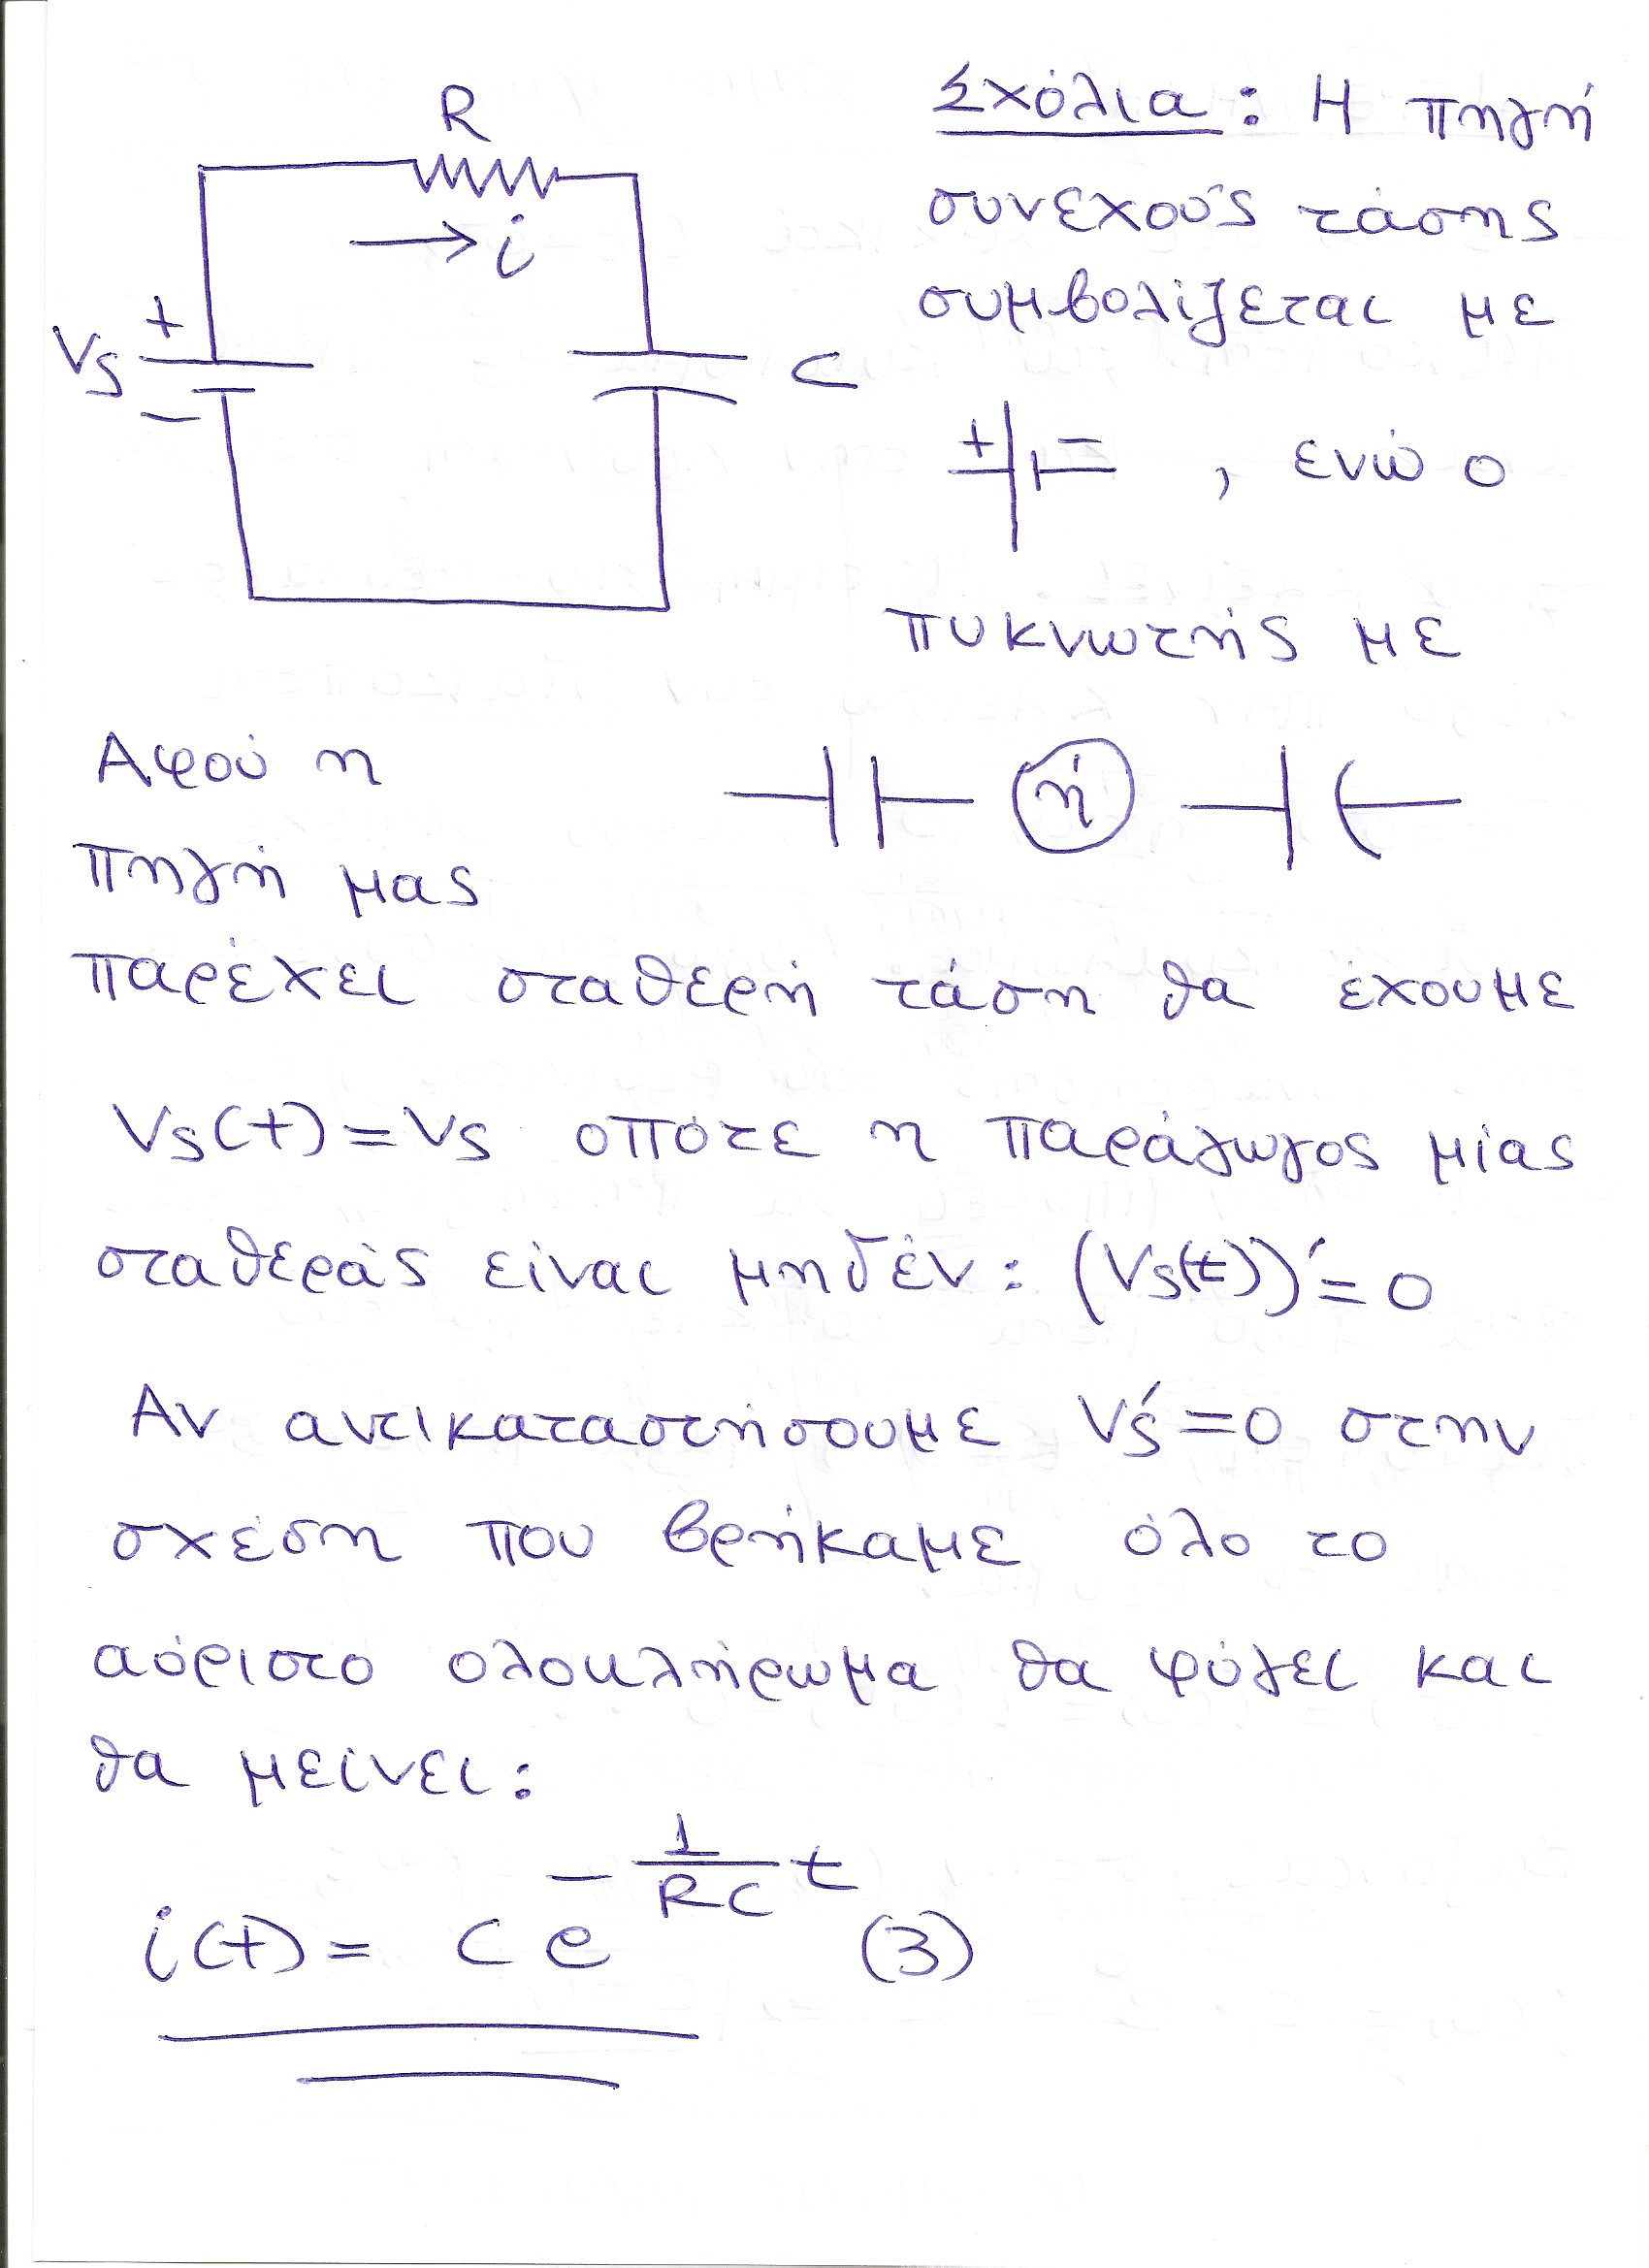 R
i
+
Vs
−
C
Σχόλια: Η πηγή
συνεχούς τάσης
συμβολίζεται με
+ − , ενώ ο
πυκνωτής με
Αφού η
ή
πηγή μας
παρέχει σταθερή τάση θα έχουμε
Vs(t)=Vs οπότε η παράγωγος μίας
σταθεράς είναι μηδέν: (Vs(t))'=0
Αν αντικαταστήσουμε Vs'=0 στην
σχέση που βρήκαμε όλο το
αόριστο ολοκλήρωμα θα φύγει και
θα μείνει:
i(t)= c e^{-\frac{1}{RC}t} (3)